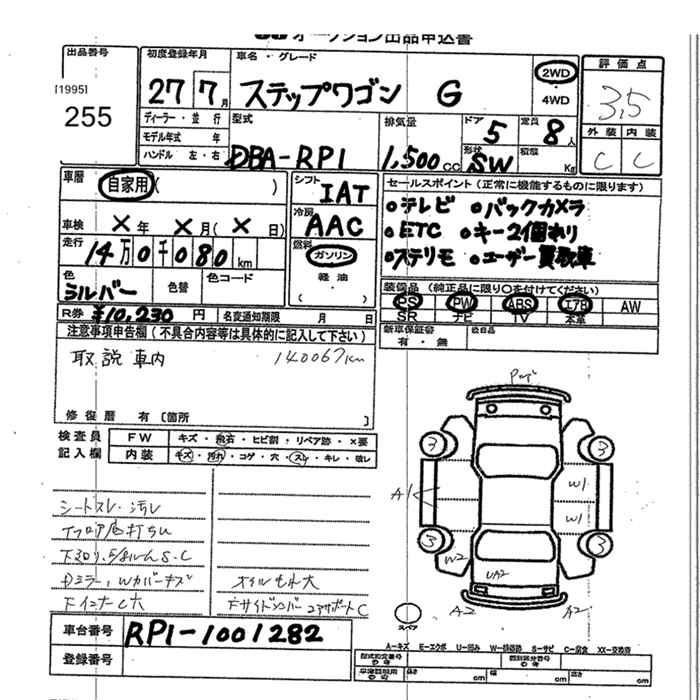 オークション出品申込書
出品番号
[1995]
255
初度登録年月
27 7月
車名・グレード
ステップワゴン G
2WD
・
4WD
評価点
3.5
外装 内装
C C
ディーラー・並行
モデル年式 年
ハンドル 左・右
型式
DBA-RP1
排気量
1,500cc
ドア
5
定員
8人
形状
SW
積載
Kg
車歴
自家用( )
車検 ×年 ×月(×日)
走行 14万0千080km
色
シルバー
色替
色コード
シフト
IAT
冷房
AAC
燃料
ガソリン
軽油・
( )
セールスポイント(正常に機能するものに限ります)
○テレビ ○バックカメラ
○ETC ○キー2個有り
○ステリモ ○ユーザー買取車
装備品(純正品に限り○を付けてください)
PS PW ABS エアB AW
SR ナビ TV 本革
R券 ¥10,230円
名変通知期限 月 日
新車保証書
有・無
注意事項申告欄(不具合内容等は具体的に記入して下さい)
取説車内 140067km
修復歴 有〔箇所 〕
検査員
記入欄
FW キズ・飛石・ヒビ割・リペア跡・×要
内装 キズ・汚れ・コゲ・穴・スレ・キレ・破レ
シートスレ・汚レ
S.C
オイルもれ大
C
3 3 3 3
A1
W1
W1
W2
UA2
A2 A2
スペア
車台番号 RP1-1001282
登録番号
A−キズ E−エクボ U−凹み W−補修跡 S−サビ C−腐食 XX−交換済
型式指定番号
類別区分番号
長さ cm 幅 cm 高さ cm